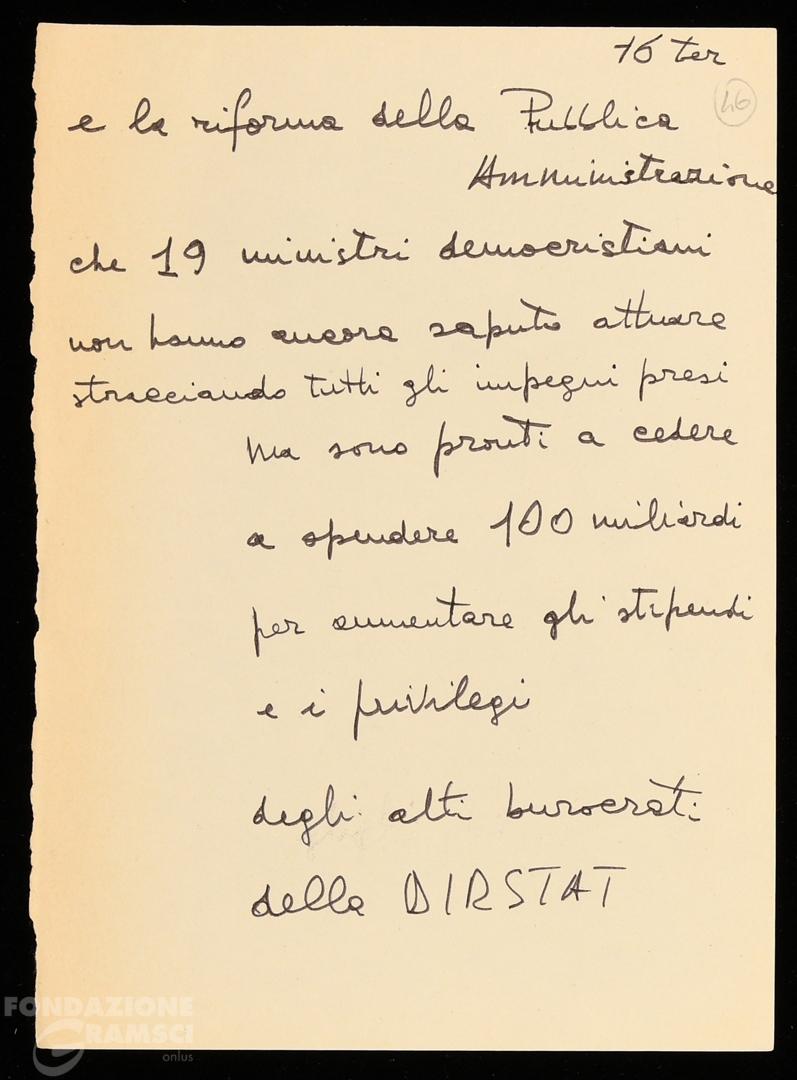 16 ter
46
e la riforma della Pubblica
Amministrazione
che 19 ministri democristiani
non hanno ancora saputo attuare
stracciando tutti gli impegni presi
ma sono pronti a cedere
a spendere 100 miliardi
per aumentare gli stipendi
e i privilegi
degli alti burocrati
della DIRSTAT
FONDAZIONE
GRAMSCI
onlus